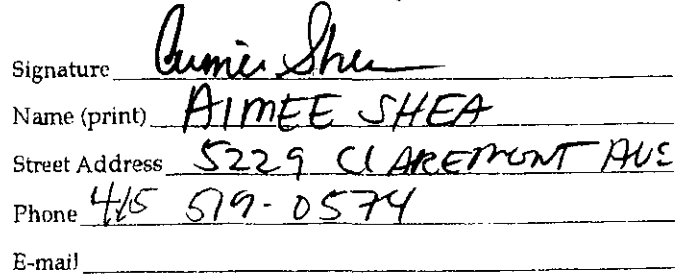 Signature Aimee Shea
Name (print) AIMEE SHEA
Street Address 5229 CLAREMONT AVE
Phone 415 519-0574
E-mail